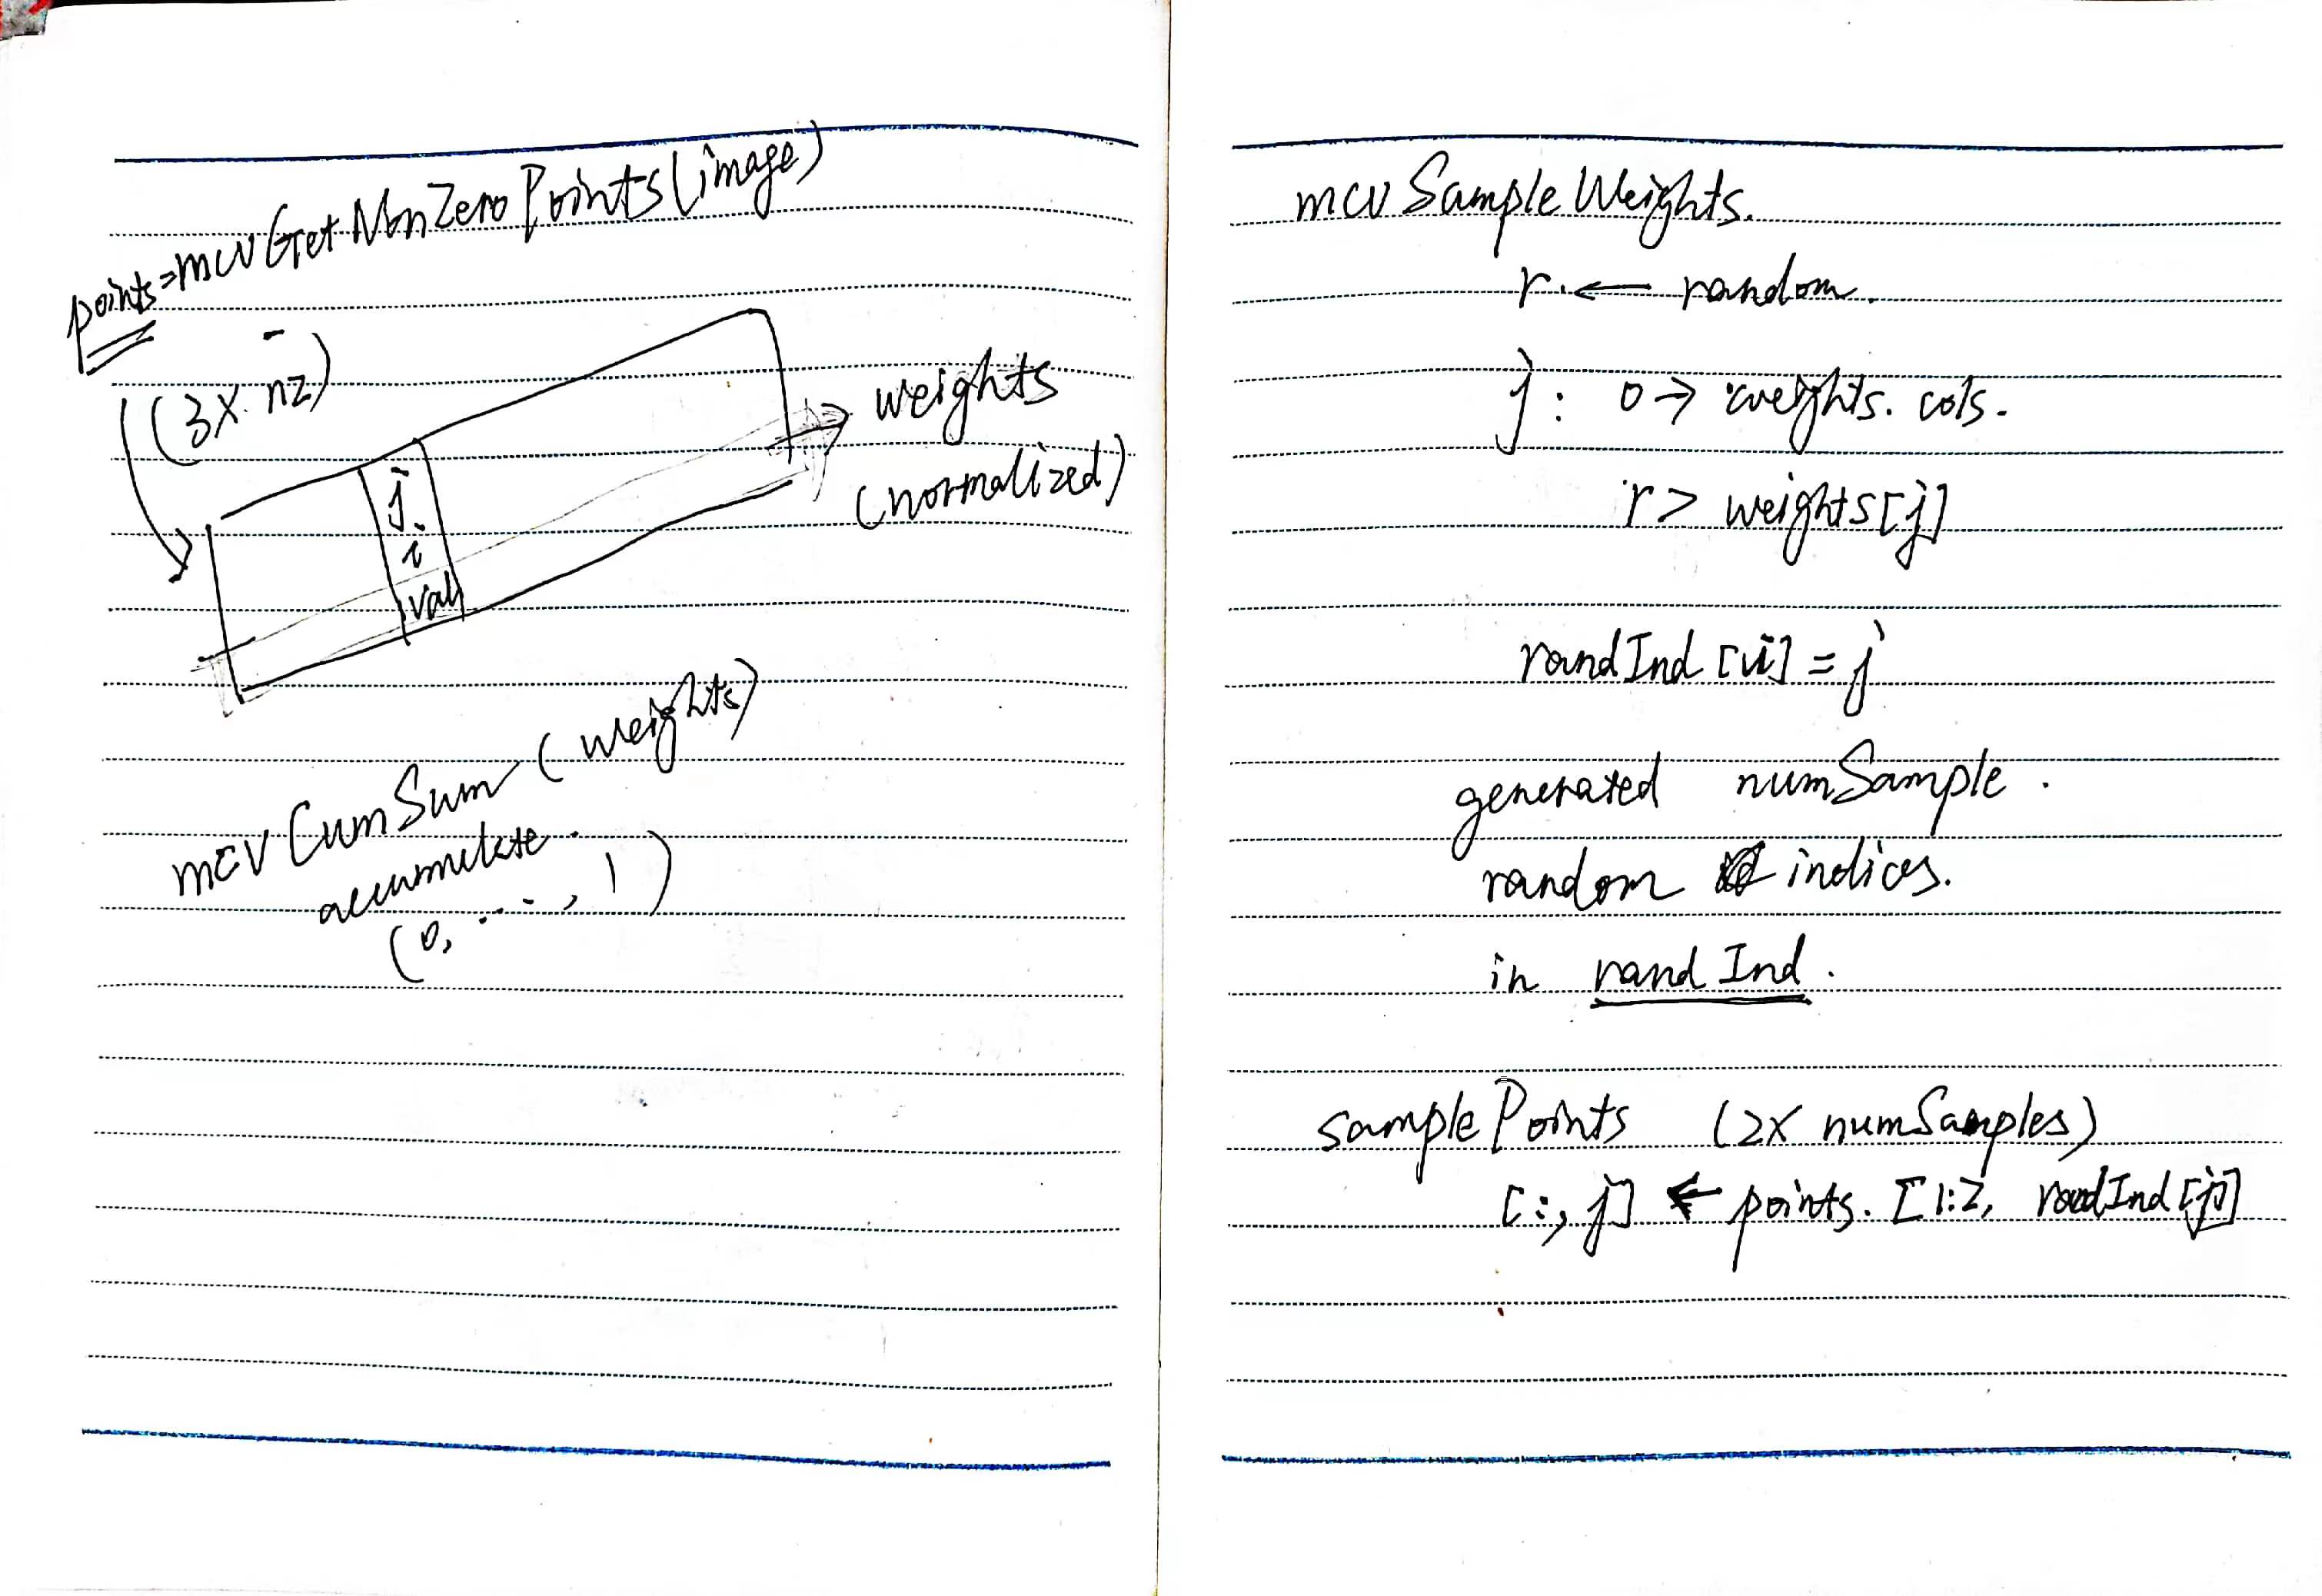 points=mcvGetNonZeroPoints(image)
(3x nz)
j
i
val
weights
(normalized)
mcvCumSum(weights)
accumulate.
(0, ..., 1)
mcvSampleWeights.
r ← random.
j: 0 → weights. cols.
r > weights[j]
randInd [i] = j
generated numSample.
random indices.
in randInd.
samplePoints (2x numSamples)
[:, j] ← points. [1:2, randInd[j]]